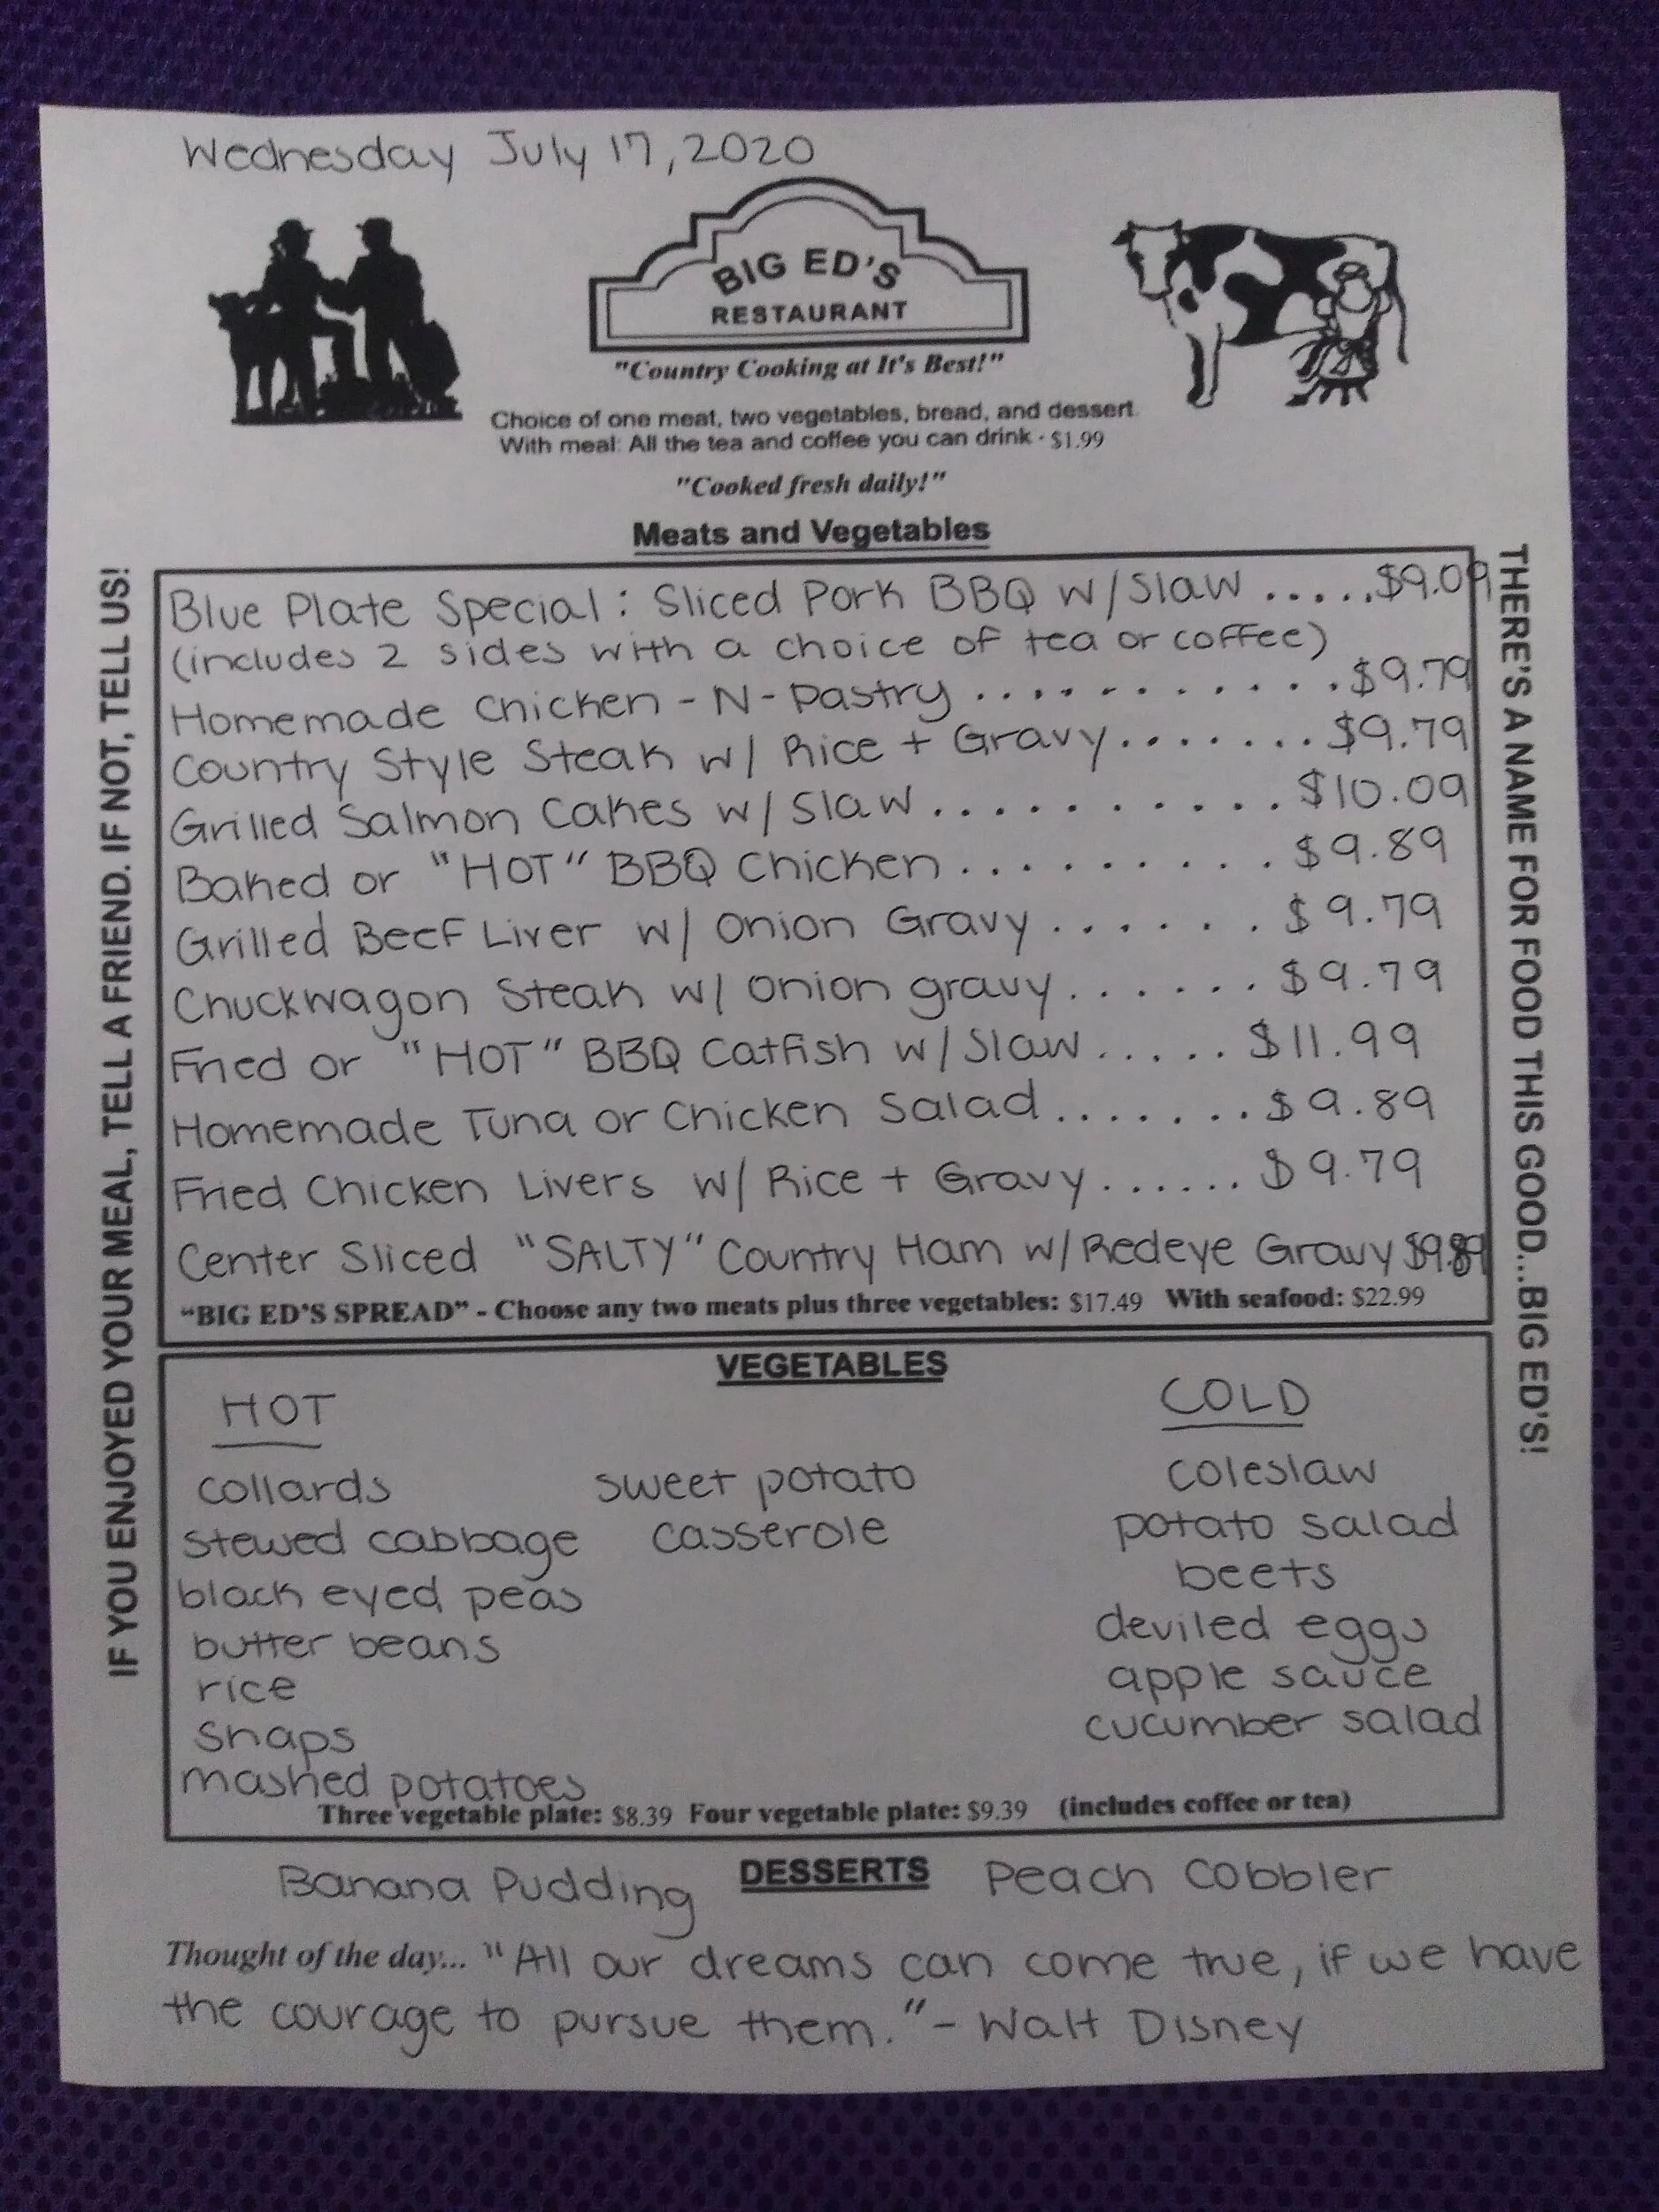 Wednesday July 17, 2020
BIG ED'S
RESTAURANT
"Country Cooking at It's Best!"
Choice of one meat, two vegetables, bread, and dessert.
With meal: All the tea and coffee you can drink - $1.99
"Cooked fresh daily!"
Meats and Vegetables
IF YOU ENJOYED YOUR MEAL, TELL A FRIEND. IF NOT, TELL US!
Blue Plate Special: Sliced Pork BBQ w/Slaw .....$9.09
(includes 2 sides with a choice of tea or coffee)
Homemade Chicken-N-Pastry ............$9.79
Country Style Steak w/ Rice + Gravy.......$9.79
Grilled Salmon Cakes w/Slaw...........$10.09
Baked or "HOT" BBQ Chicken..........$9.89
Grilled Beef Liver w/ Onion Gravy......$9.79
Chuckwagon Steak w/ Onion gravy......$9.79
Fried or "HOT" BBQ Catfish w/Slaw.....$11.99
Homemade Tuna or Chicken Salad.......$9.89
Fried Chicken Livers w/ Rice + Gravy......$9.79
Center Sliced "SALTY" Country Ham w/Redeye Gravy $9.89
"BIG ED'S SPREAD" - Choose any two meats plus three vegetables: $17.49 With seafood: $22.99
THERE'S A NAME FOR FOOD THIS GOOD...BIG ED'S!
VEGETABLES
HOT
collards
stewed cabbage
black eyed peas
butter beans
rice
snaps
mashed potatoes
sweet potato
casserole
COLD
coleslaw
potato salad
beets
deviled eggs
apple sauce
cucumber salad
Three vegetable plate: $8.39 Four vegetable plate: $9.39 (includes coffee or tea)
Banana Pudding DESSERTS Peach Cobbler
Thought of the day... "All our dreams can come true, if we have
the courage to pursue them." - Walt Disney